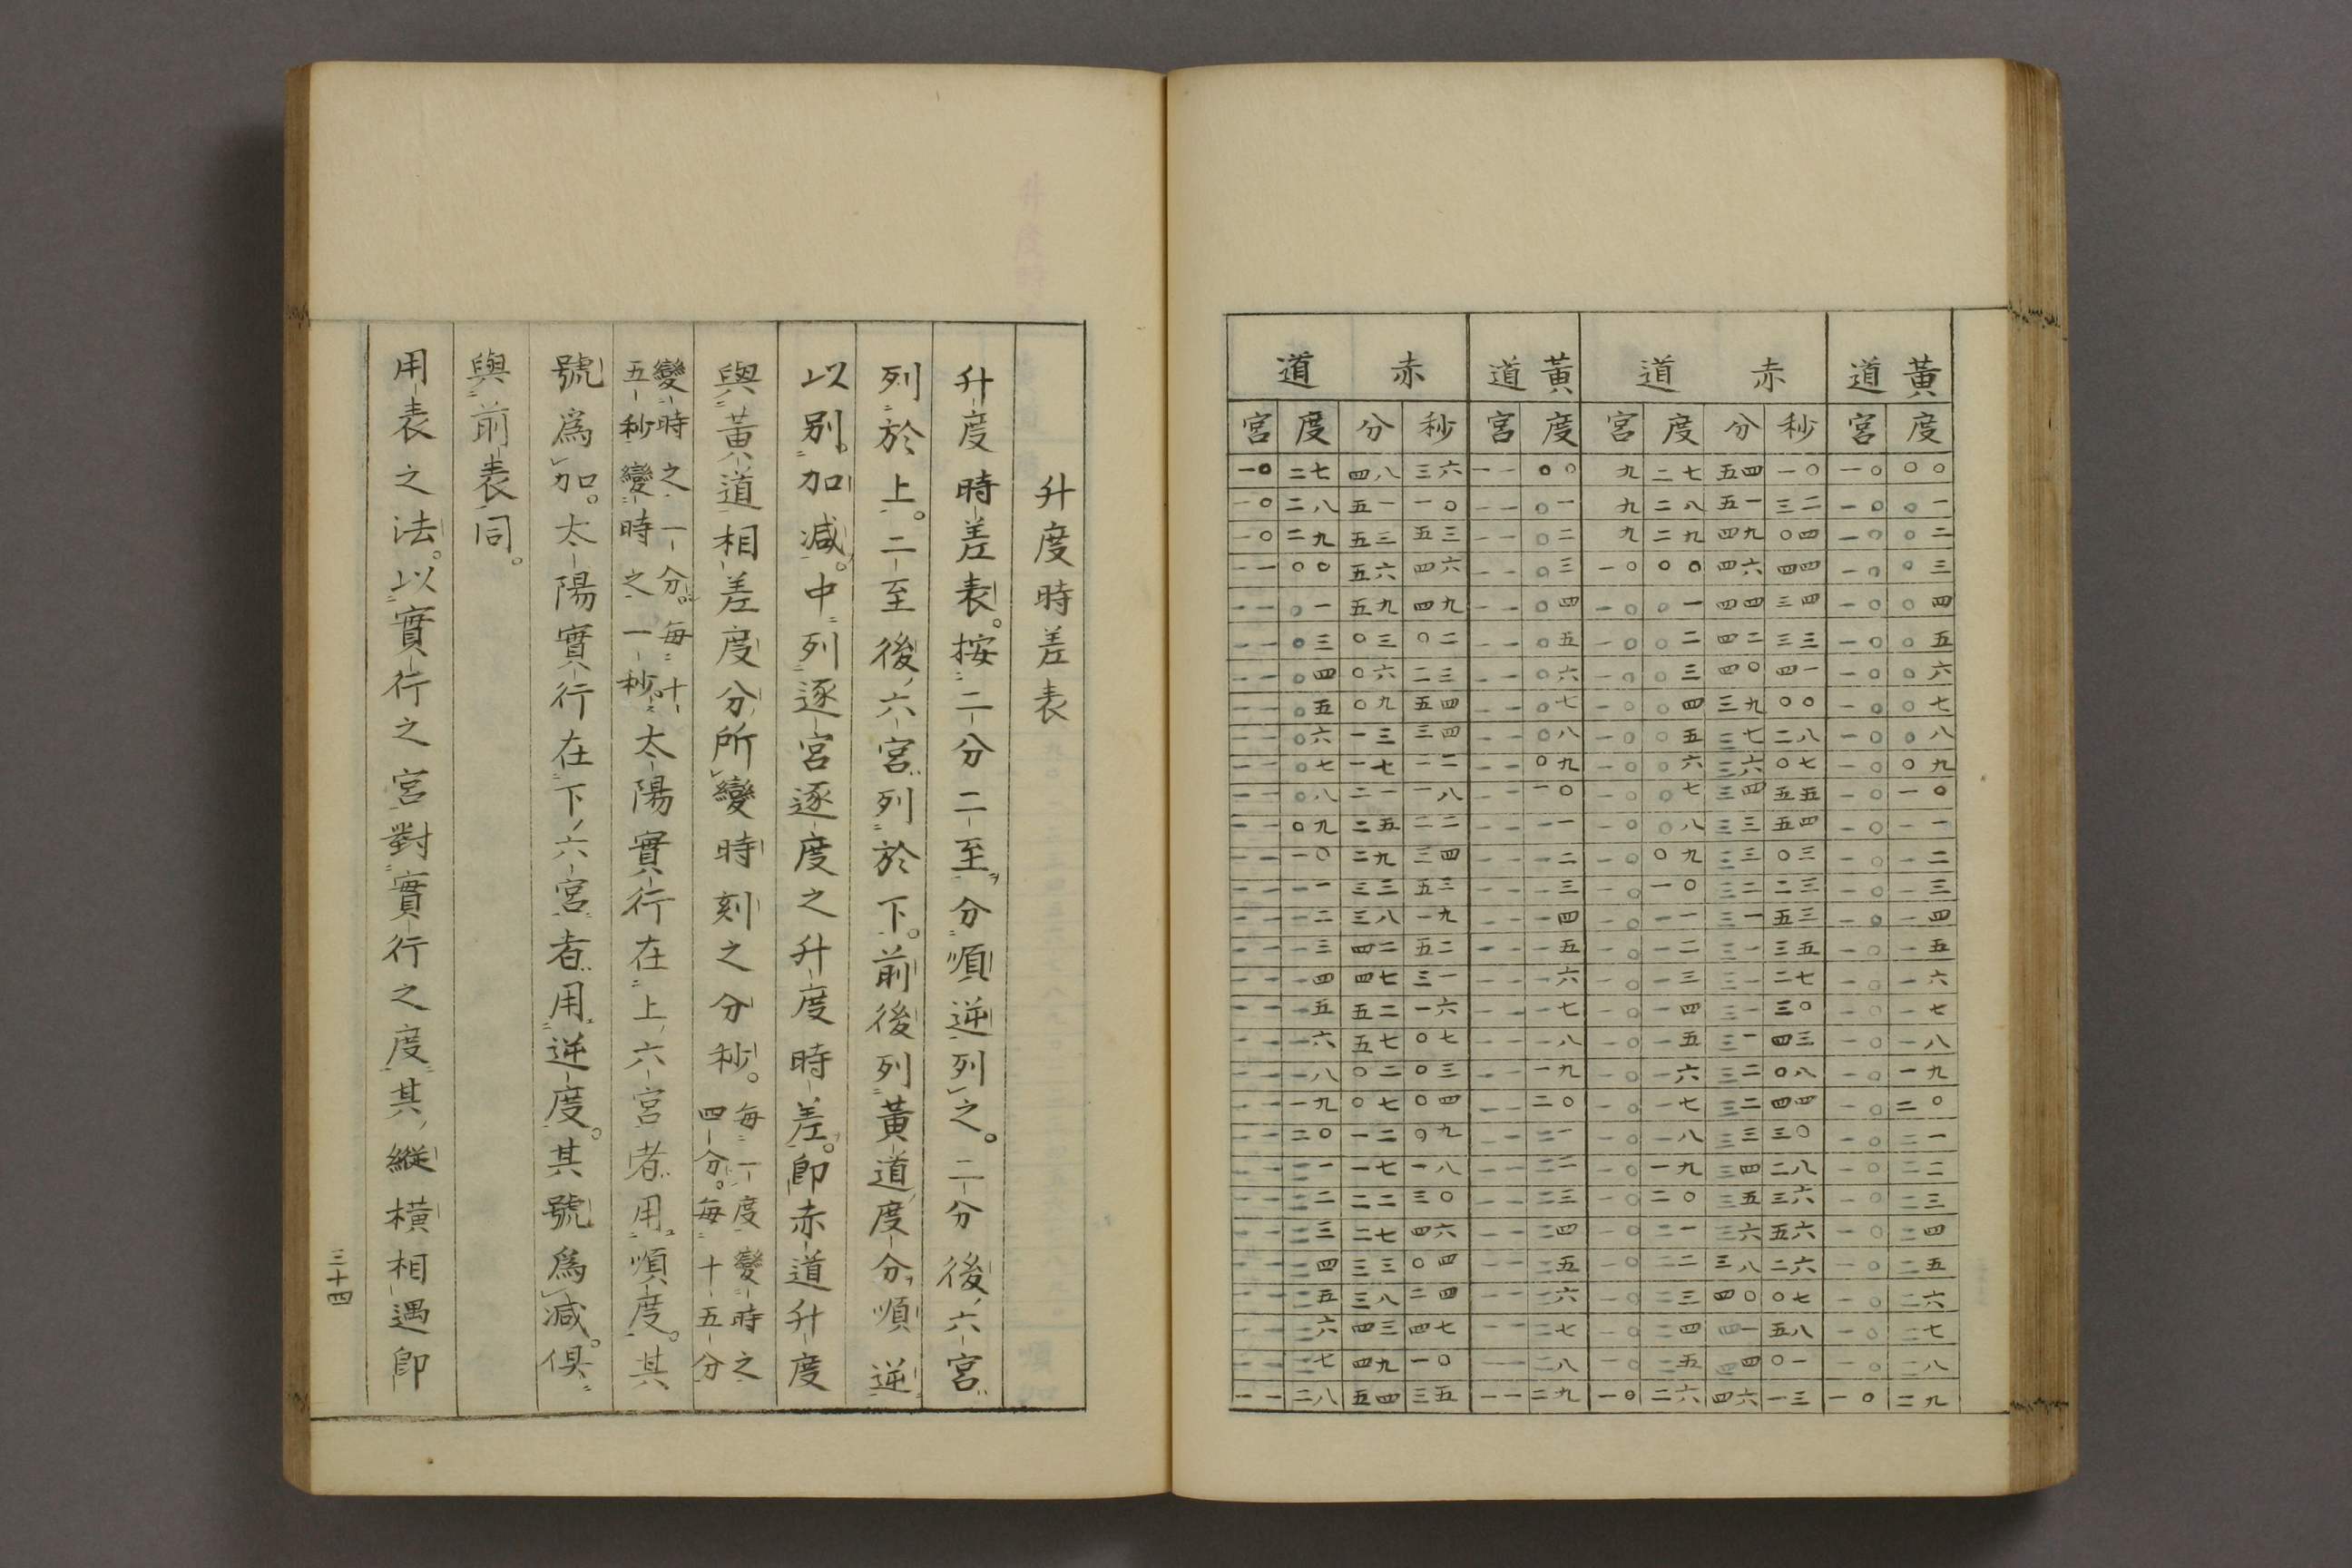 黃道 赤道 黃道 赤道
宮 度 分 秒 宮 度 宮 度 分 秒 宮 度
一〇 二七 四八 三六 一一 〇〇 九 二七 五四 一〇 一〇 〇〇
一〇 二八 五一 一〇 一一 〇一 九 二八 五一 三二 一〇 〇一
一〇 二九 五三 五三 一一 〇二 九 二九 四九 〇四 一〇 〇二
一一 〇〇 五六 四六 一一 〇三 一〇 〇〇 四六 四四 一〇 〇三
一一 〇一 五九 四九 一一 〇四 一〇 〇一 四四 三四 一〇 〇四
一一 〇三 〇三 〇二 一一 〇五 一〇 〇二 四二 三三 一〇 〇五
一一 〇四 〇六 二三 一一 〇六 一〇 〇三 四〇 四一 一〇 〇六
一一 〇五 〇九 五四 一一 〇七 一〇 〇四 三九 〇〇 一〇 〇七
一一 〇六 一三 三四 一一 〇八 一〇 〇五 三七 二八 一〇 〇八
一一 〇七 一七 二二 一一 〇九 一〇 〇六 三六 〇七 一〇 〇九
一一 〇八 二一 一八 一一 一〇 一〇 〇七 三四 五五 一〇 一〇
一一 〇九 二五 二二 一一 一一 一〇 〇八 三三 五四 一〇 一一
一一 一〇 二九 三四 一一 一二 一〇 〇九 三三 〇三 一〇 一二
一一 一一 三三 五三 一一 一三 一〇 一〇 三二 二三 一〇 一三
一一 一二 三八 一九 一一 一四 一〇 一一 三一 五三 一〇 一四
一一 一三 四二 五二 一一 一五 一〇 一二 三一 三五 一〇 一五
一一 一四 四七 三一 一一 一六 一〇 一三 三一 二七 一〇 一六
一一 一五 五二 一六 一一 一七 一〇 一四 三一 三〇 一〇 一七
一一 一六 五七 〇七 一一 一八 一〇 一五 三一 四三 一〇 一八
一一 一八 〇二 〇三 一一 一九 一〇 一六 三二 〇八 一〇 一九
一一 一九 〇七 〇四 一一 二〇 一〇 一七 三二 四四 一〇 二〇
一一 二〇 一二 〇九 一一 二一 一〇 一八 三三 三〇 一〇 二一
一一 二一 一七 一八 一一 二二 一〇 一九 三四 二八 一〇 二二
一一 二二 二二 三〇 一一 二三 一〇 二〇 三五 三六 一〇 二三
一一 二三 二七 四六 一一 二四 一〇 二一 三六 五六 一〇 二四
一一 二四 三三 〇四 一一 二五 一〇 二二 三八 二六 一〇 二五
一一 二五 三八 二四 一一 二六 一〇 二三 四〇 〇七 一〇 二六
一一 二六 四三 四七 一一 二七 一〇 二四 四一 五八 一〇 二七
一一 二七 四九 一〇 一一 二八 一〇 二五 四四 〇一 一〇 二八
一一 二八 五四 三五 一一 二九 一〇 二六 四六 一三 一〇 二九
升度時差表
升度時差表。按二分二至分順逆列之。二分後六宮
列於上。二至後六宮列於下。前後列黃道度分順逆
以別加減。中列逐宮逐度之升度時差。卽赤道升度
與黃道相差度分所變時刻之分秒。每一度變時之四分。每十五分
變時之一分。每十五秒變時之一秒。太陽實行在上六宮者用順度。其
號爲加。太陽實行在下六宮者用逆度。其號爲減。俱
與前表同。
用表之法。以實行之宮對實行之度其縱橫相遇卽
三十四